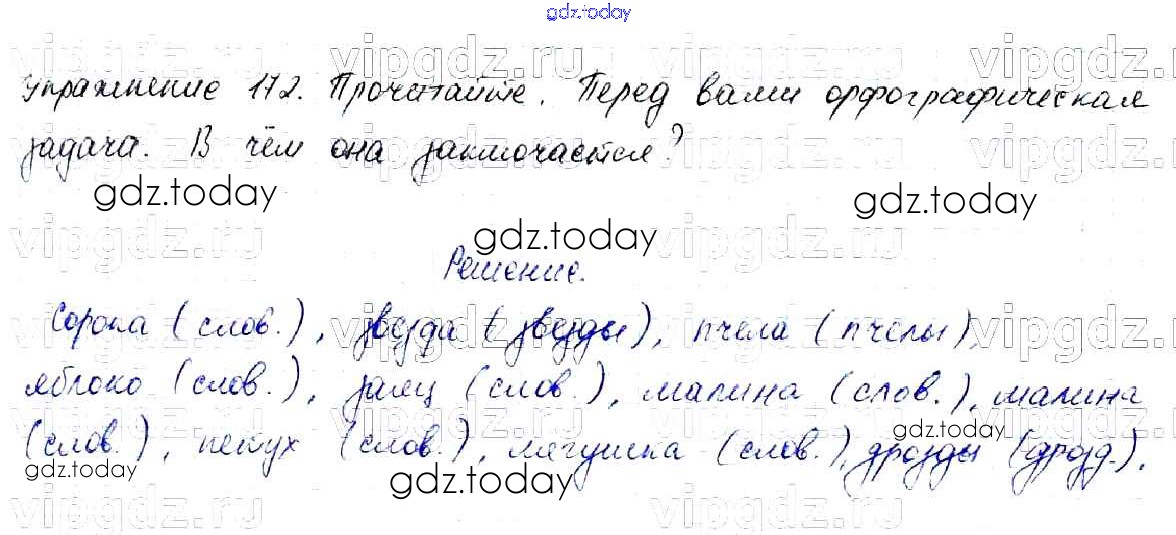 gdz.today
vipgdz.ru vipgdz.ru vipgdz.ru vipgdz.ru
Упражнение 172. Прочитайте. Перед вами орфографическая
задача. В чём она заключается?
vipgdz.ru vipgdz.ru
gdz.today gdz.today
vipgdz.ru gdz.today vipgdz.ru
Решение.
Сорока (слов.), звезда (звёзды), пчела (пчелы),
vipgdz.ru vipgdz.ru vipgdz.ru vipgdz.ru
яблоко (слов.), заяц (слов.), малина (слов.), малина
(слов.), петух (слов.), лягушка (слов.), дрозды (дрозд.).
gdz.today
vipgdz.ru vipgdz.ru
gdz.today gdz.today gdz.today
vipgdz.ru vipgdz.ru